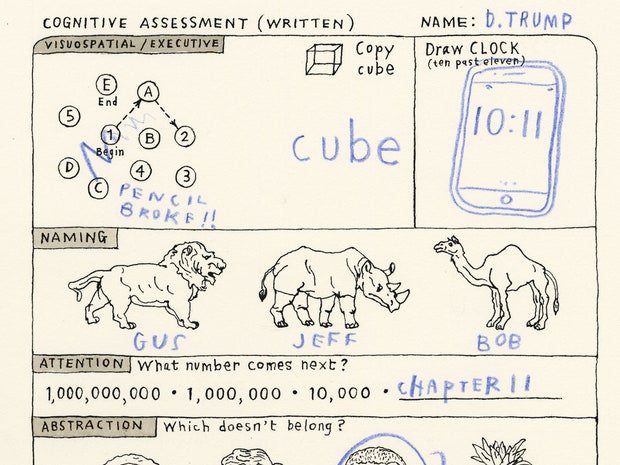 COGNITIVE ASSESSMENT (WRITTEN)
NAME: D.TRUMP
VISUOSPATIAL / EXECUTIVE
Copy
cube
Draw CLOCK
(ten past eleven)
E
End
A
5
1
Begin
B
2
D
4
3
C
PENCIL
BROKE!!
cube
10:11
NAMING
GUS
JEFF
BOB
ATTENTION What number comes next?
1,000,000,000 · 1,000,000 · 10,000 · CHAPTER 11
ABSTRACTION Which doesn't belong?